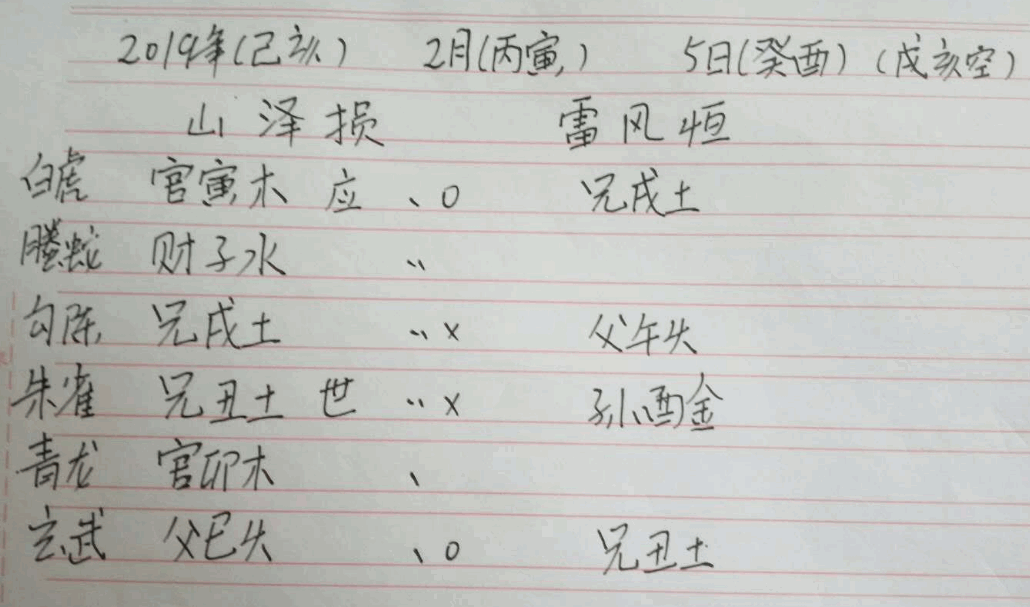 2019年(己亥) 2月(丙寅) 5日(癸酉) (戌亥空)
山泽损 雷风恒
白虎 官寅木 应 、O 兄戌土
螣蛇 财子水 〃
勾陈 兄戌土 〃 x 父午火
朱雀 兄丑土 世 〃 x 孙酉金
青龙 官卯木 、
玄武 父巳火 、O 兄丑土